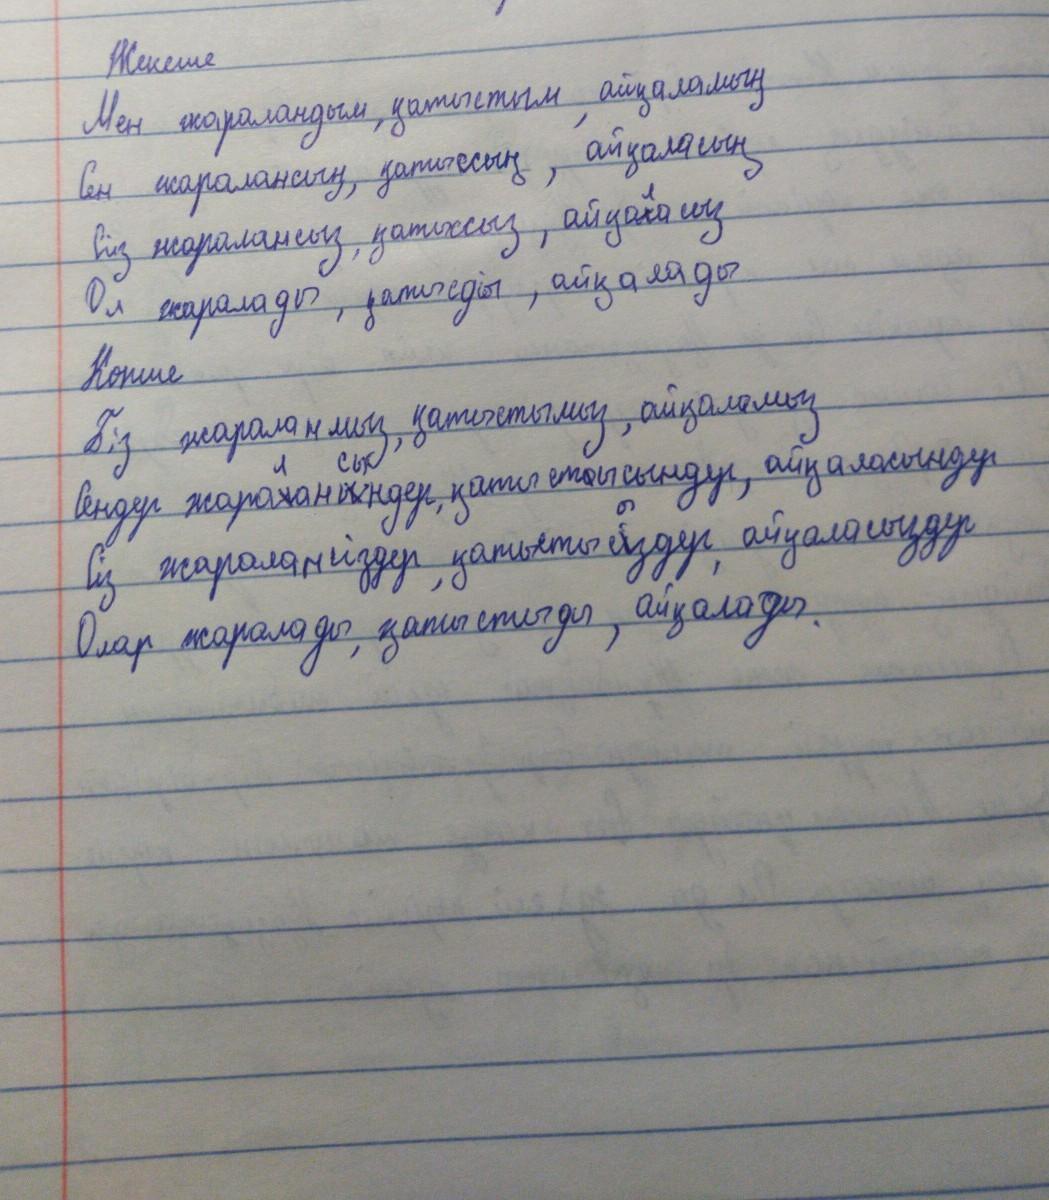 Жекеше
Мен жараландым, қатыстым, айқаламың
Сен жаралансың, қатыссың, айқаласың
Сіз жаралансыз, қатыссыз, айқаласыз
Ол жаралады, қатысды, айқалады
Көпше
Біз жараланмыз, қатыстымыз, айқаламыз
Сендер жаралансыңдер, қатыстысындер, айқаласындер
Сіз жаралансіздер, қатыстысыздер, айқаласыздер
Олар жаралады, қатыстыды, айқалады.